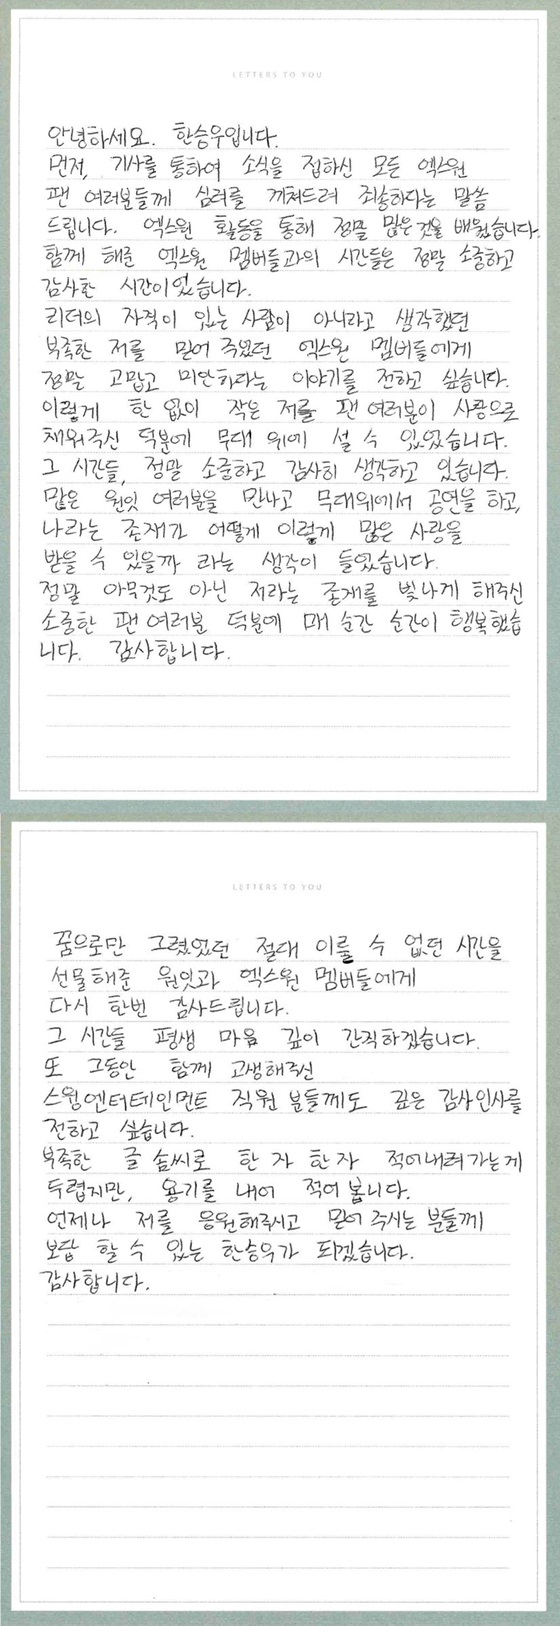 LETTERS TO YOU
안녕하세요. 한승우입니다.
먼저, 기사를 통하여 소식을 접하신 모든 엑스원
팬 여러분들께 심려를 끼쳐드려 죄송하다는 말씀
드립니다. 엑스원 활동을 통해 정말 많은것을 배웠습니다.
함께 해준 엑스원 멤버들과의 시간들은 정말 소중하고
감사한 시간이었습니다.
리더의 자격이 있는 사람이 아니라고 생각했던
부족한 저를 믿어 주었던 엑스원 멤버들에게
정말 고맙고 미안하다는 이야기를 전하고 싶습니다.
이렇게 한 없이 작은 저를 팬 여러분이 사랑으로
채워주신 덕분에 무대 위에 설 수 있었습니다.
그 시간들, 정말 소중하고 감사히 생각하고 있습니다.
많은 원잇 여러분을 만나고 무대위에서 공연을 하고,
나라는 존재가 어떻게 이렇게 많은 사랑을
받을 수 있을까 라는 생각이 들었습니다.
정말 아무것도 아닌 저라는 존재를 빛나게 해주신
소중한 팬 여러분 덕분에 매 순간 순간이 행복했습
니다. 감사합니다.
LETTERS TO YOU
꿈으로만 그렸었던 절대 이룰 수 없던 시간을
선물해준 원잇과 엑스원 멤버들에게
다시 한번 감사드립니다.
그 시간들 평생 마음 깊이 간직하겠습니다.
또 그동안 함께 고생해주신
스윙엔터테인먼트 직원 분들께도 깊은 감사인사를
전하고 싶습니다.
부족한 글 솜씨로 한 자 한 자 적어내려가는게
두렵지만, 용기를 내어 적어 봅니다.
언제나 저를 응원해주시고 믿어 주시는 분들께
보답 할 수 있는 한승우가 되겠습니다.
감사합니다.